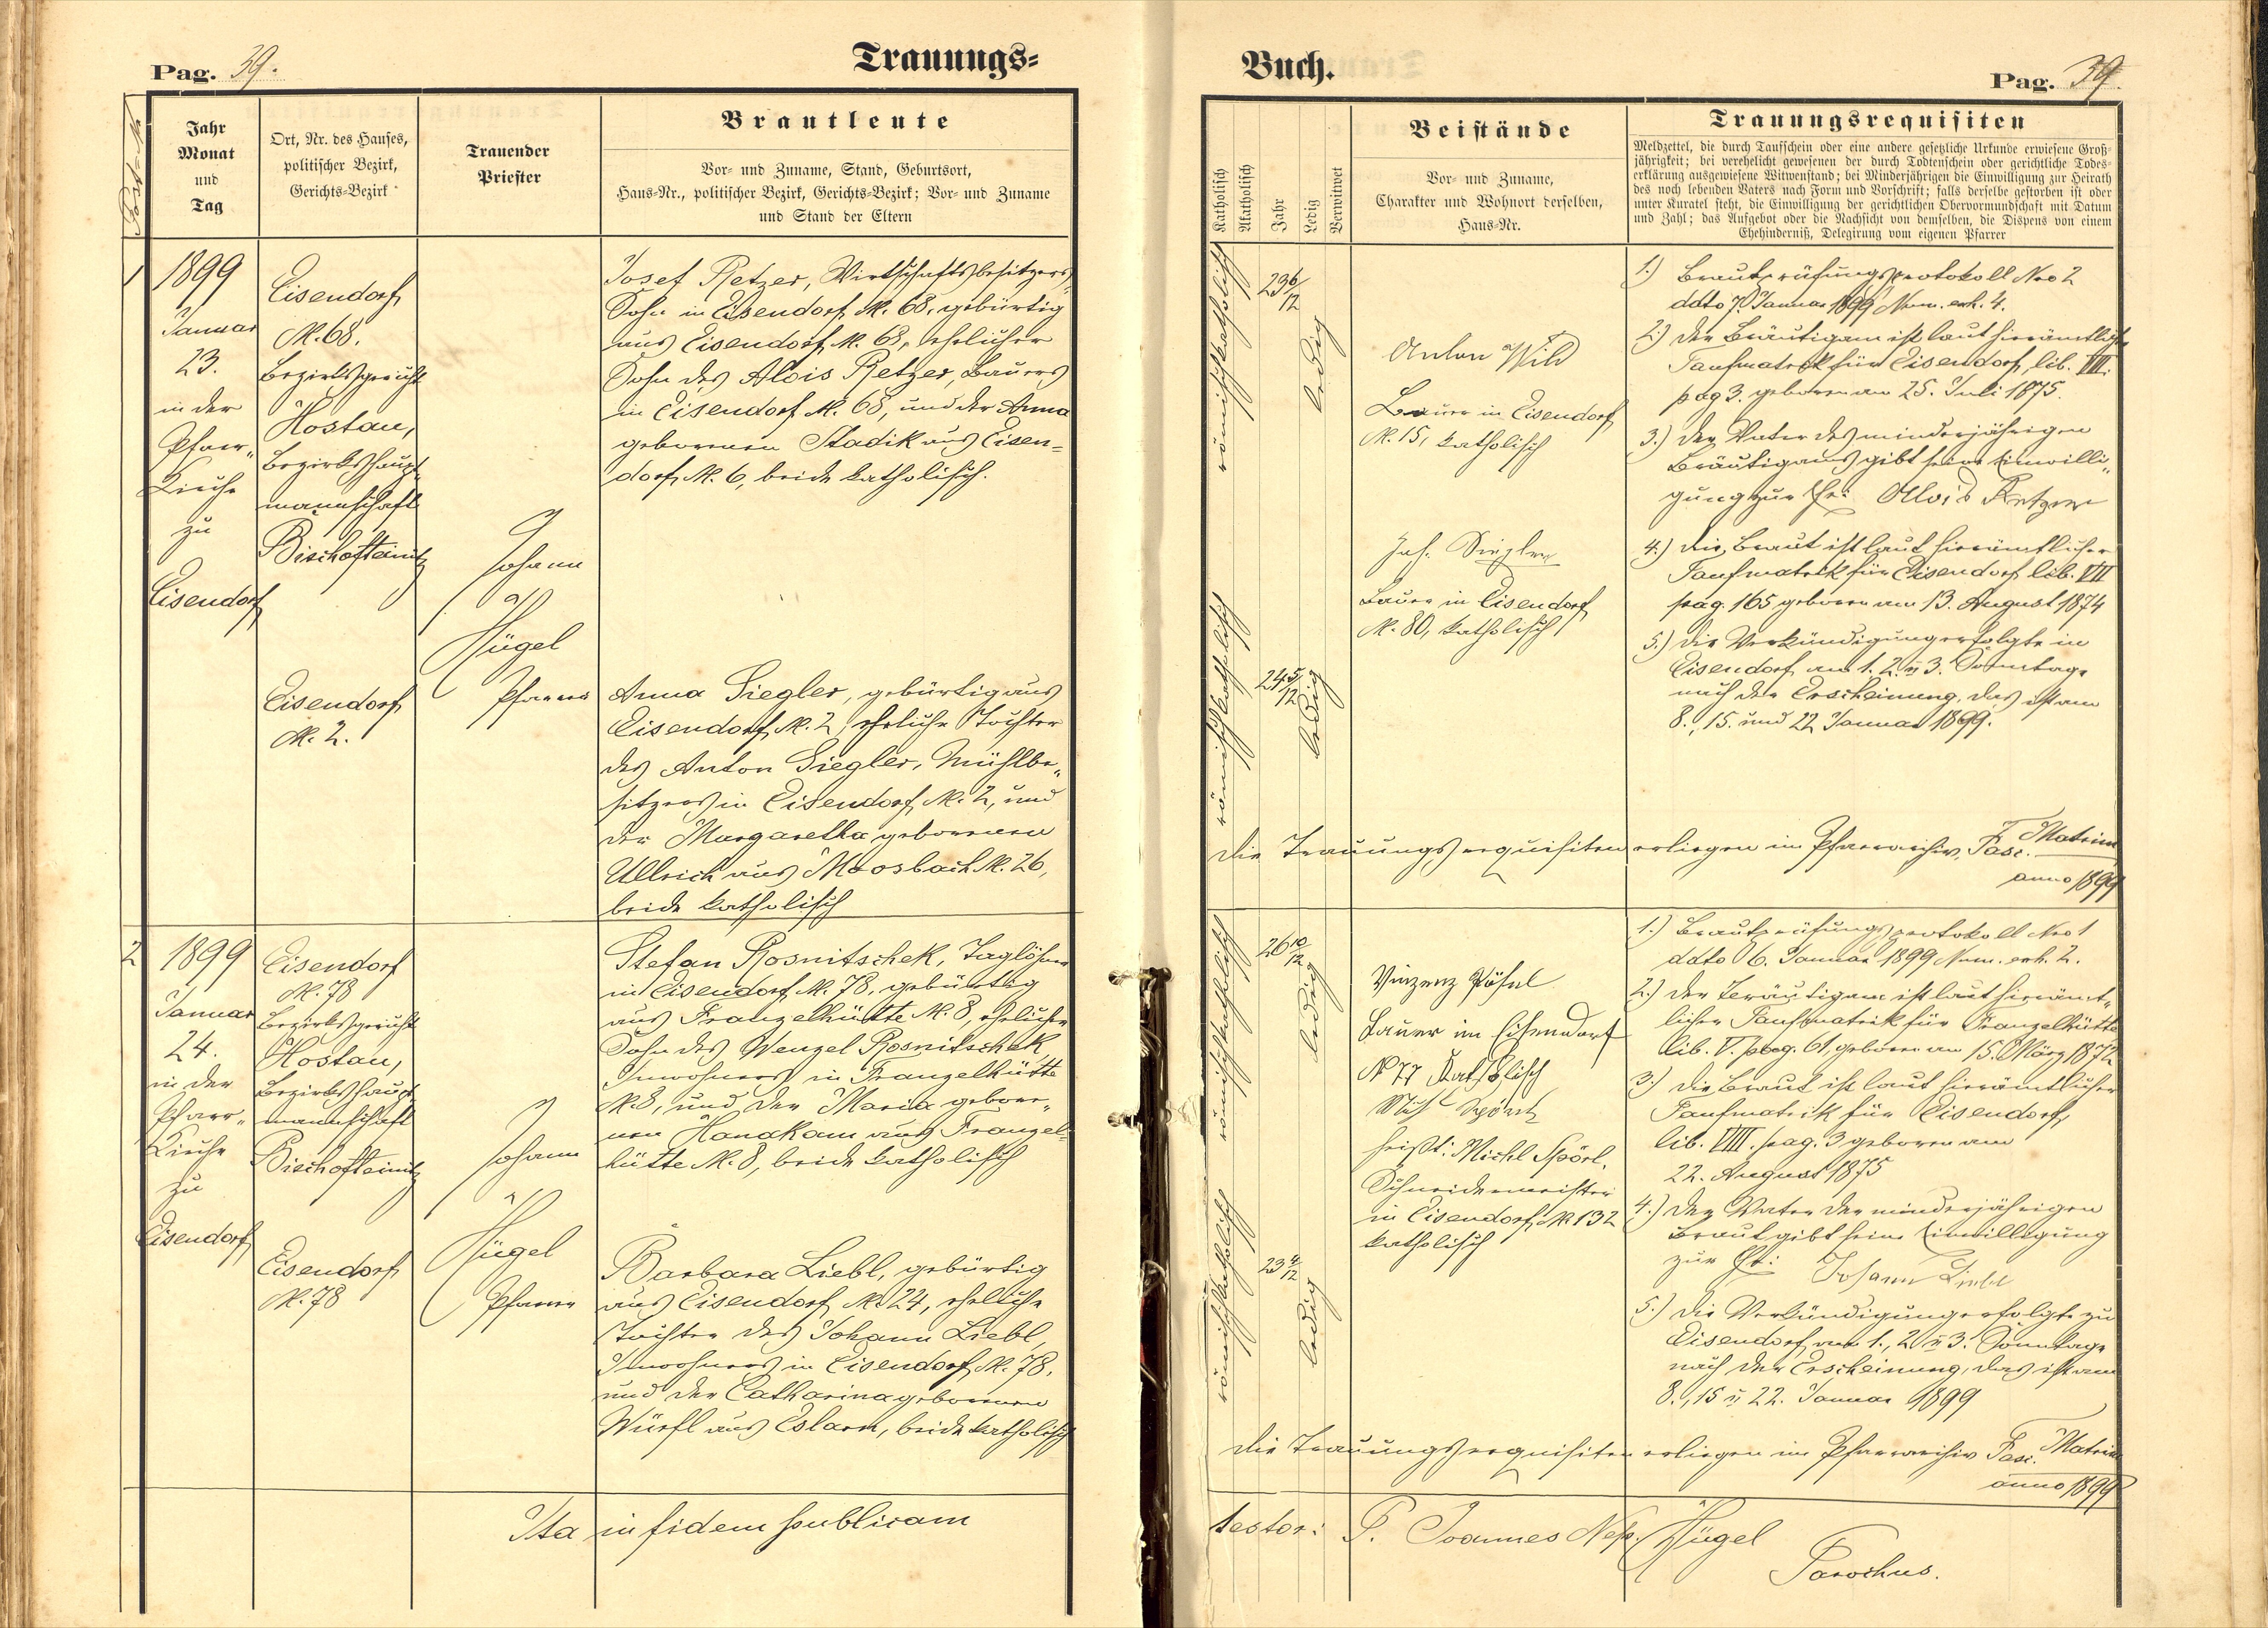 Pag. 39.
Trauungs-
Post-Nr.
Jahr
Monat
und
Tag
Ort, Nr. des Hauses,
politischer Bezirk,
Gerichts-Bezirk
Trauender
Priester
Brautleute
Vor- und Zuname, Stand, Geburtsort,
Haus-Nr., politischer Bezirk, Gerichts-Bezirk; Vor- und Zuname
und Stand der Eltern
1
1899
Januar
23.
in der
Pfarr-
Kirche
zu
Eisendorf
Eisendorf
N. 68.
Bezirksgericht
Hostau,
Bezirkshaupt-
mannschaft
Bischofteinitz
Eisendorf
N. 2.
Johann
Hügel
Pfarrer
Josef Retzer, Wirtschaftsbesitzers
Sohn in Eisendorf N. 68, gebürtig
aus Eisendorf N. 68, ehelicher
Sohn des Alois Retzer, Bauers
in Eisendorf N. 68, und der Anna
geborenen Stadik aus Eisen-
dorf N. 6, beide katholisch.
Anna Siegler, gebürtig aus
Eisendorf N. 2, eheliche Tochter
des Anton Siegler, Mühlbe-
sitzers in Eisendorf N. 2, und
der Margaretha geborenen
Ullrich aus Moosbach N. 26,
beide katholisch
2
1899
Januar
24.
in der
Pfarr-
Kirche
zu
Eisendorf
Eisendorf
N. 78
Bezirksgericht
Hostau,
Bezirkshaupt-
mannschaft
Bischofteinitz
Eisendorf
N. 78
Johann
Hügel
Pfarrer
Stefan Rosnitschek, Taglöhner
in Eisendorf N. 78, gebürtig
aus Franzelhütte N. 8, ehelicher
Sohn des Wenzel Rosnitschek,
Inwohners in Franzelhütte
N. 8, und der Maria gebore-
nen Hanakam aus Franzel-
hütte N. 8, beide katholisch
Barbara Liebl, gebürtig
aus Eisendorf N. 24, eheliche
Tochter des Johann Liebl,
Inwohners in Eisendorf N. 78,
und der Catharina geborenen
Würfl aus Eslarn, beide katholisch
Ita in fidem publicam
Buch.
Pag. 39.
Katholisch
Akatholisch
Jahr
Ledig
Verwitwet
Beistände
Vor- und Zuname,
Charakter und Wohnort derselben,
Haus-Nr.
Trauungsrequisiten
Meldzettel, die durch Taufschein oder eine andere gesetzliche Urkunde erwiesene Groß-
jährigkeit; bei verehelicht gewesenen der durch Todtenschein oder gerichtliche Todes-
erklärung ausgewiesene Witwenstand; bei Minderjährigen die Einwilligung zur Heirath
des noch lebenden Vaters nach Form und Vorschrift; falls derselbe gestorben ist oder
unter Kuratel steht, die Einwilligung der gerichtlichen Obervormundschaft mit Datum
und Zahl; das Aufgebot oder die Nachsicht von demselben, die Dispens von einem
Ehehinderniß, Delegirung vom eigenen Pfarrer
römischkatholisch
23 6/12
ledig
römischkatholisch
24 5/12
ledig
Anton Wild
Bauer in Eisendorf
N. 15, katholisch
Joh. Siegler
Bauer in Eisendorf
N. 80, katholisch
1.) Brautprüfungsprotokoll Nro 2
ddto 7. Januar 1899 Num. exh. 4.
2.) Der Bräutigam ist laut hierämtlicher
Taufmatrik für Eisendorf, lib. VIII.
pag 3. geboren am 25. Juli 1875.
3.) Der Vater des minderjährigen
Bräutigams gibt seine Einwilli-
gung zur Ehe: Alois Retzer
4.) Die Braut ist laut hierämtlicher
Taufmatrik für Eisendorf lib. VII
pag. 165 geboren am 13. August 1874
5.) Die Verkündigung erfolgte in
Eisendorf am 1. 2. u 3. Sonntage
nach der Erscheinung, das ist am
8., 15. und 22 Januar 1899.
Die Trauungsrequisiten erliegen im Pfarrarchiv, Fasc. Matrim
anno 1899
römischkatholisch
26 10/12
ledig
römischkatholisch
23 4/12
ledig
Vinzenz Pösel
Bauer in Eisendorf
N 77 Katholisch
Mich Spörl
heißt: Michl Spörl.
Schneidermeister
in Eisendorf N. 132
katholisch
1.) Brautprüfungsprotokoll Nro 1
ddto 6. Januar 1899 Num. exh. 2.
2.) Der Bräutigam ist laut hierämt-
licher Taufmatrik für Franzelhütte
lib. V. pag. 61, geboren am 15. März 1872
3.) Die Braut ist laut hierämtlicher
Taufmatrik für Eisendorf,
lib. VIII. pag. 3 geboren am
22. August 1875
4.) Der Vater der minderjährigen
Braut gibt seine Einwilligung
zur Ehe: Johann Liebl
5.) Die Verkündigung erfolgte zu
Eisendorf am 1., 2. u 3. Sonntage
nach der Erscheinung, das ist am
8., 15 u 22. Januar 1899
Die Trauungsrequisiten erliegen im Pfarrarchiv Fasc. Matrim
anno 1899
testor: P. Joannes Nep. Hügel
Parochus.